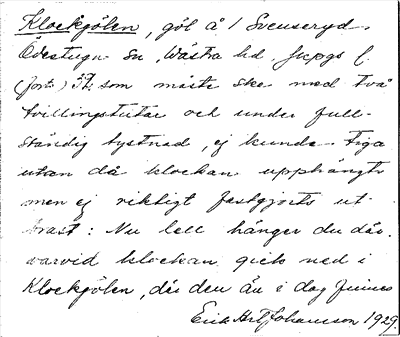 Klockgölen, göl å 1 Svenseryd.
Ödestugu sn, Västra hd. Jkpgs l.
(forts.) som måste ske med två
tvillingstutar och under full-
ständig tystnad, ej kunde tiga
utan då klockan upphängts
men ej riktigt fastgjorts ut-
brast: Nu lell hänger du där.
varvid klockan gick ned i
Klockgölen, där den än i dag finnes
Erik Hrtz Johansson 1929.